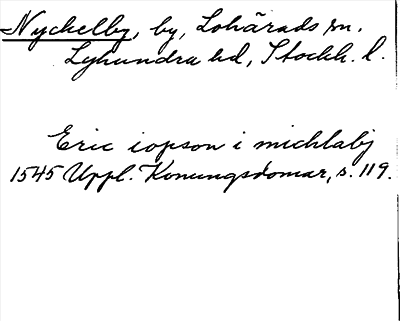 Nyckelby, by, Lohärads sn.
Lyhundra hd, Stockh. l.
Eric iopson i michlabj
1545 Uppl. Konungsdomar, s. 119.